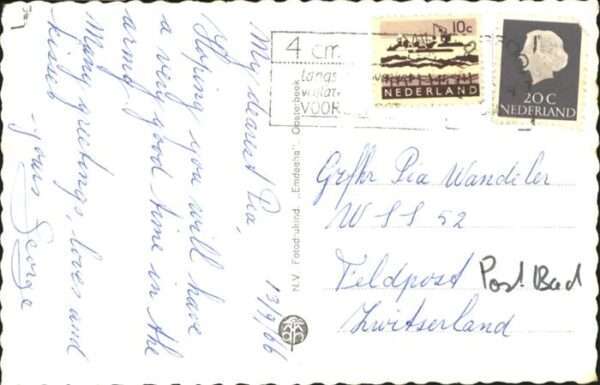 13/9/66
My dearest Pia,
Hoping you will have
a very good time in the
army
Many greetings, loves and
kisses
yours George
N.V. Fotodrukind. „Emdeeha", Oosterbeek
4 cm.
langs
VOOR
10c
NEDERLAND
20C
NEDERLAND
Gefkr Pia Wandeler
WSS 52
Feldpost Post Bad
Zwitserland